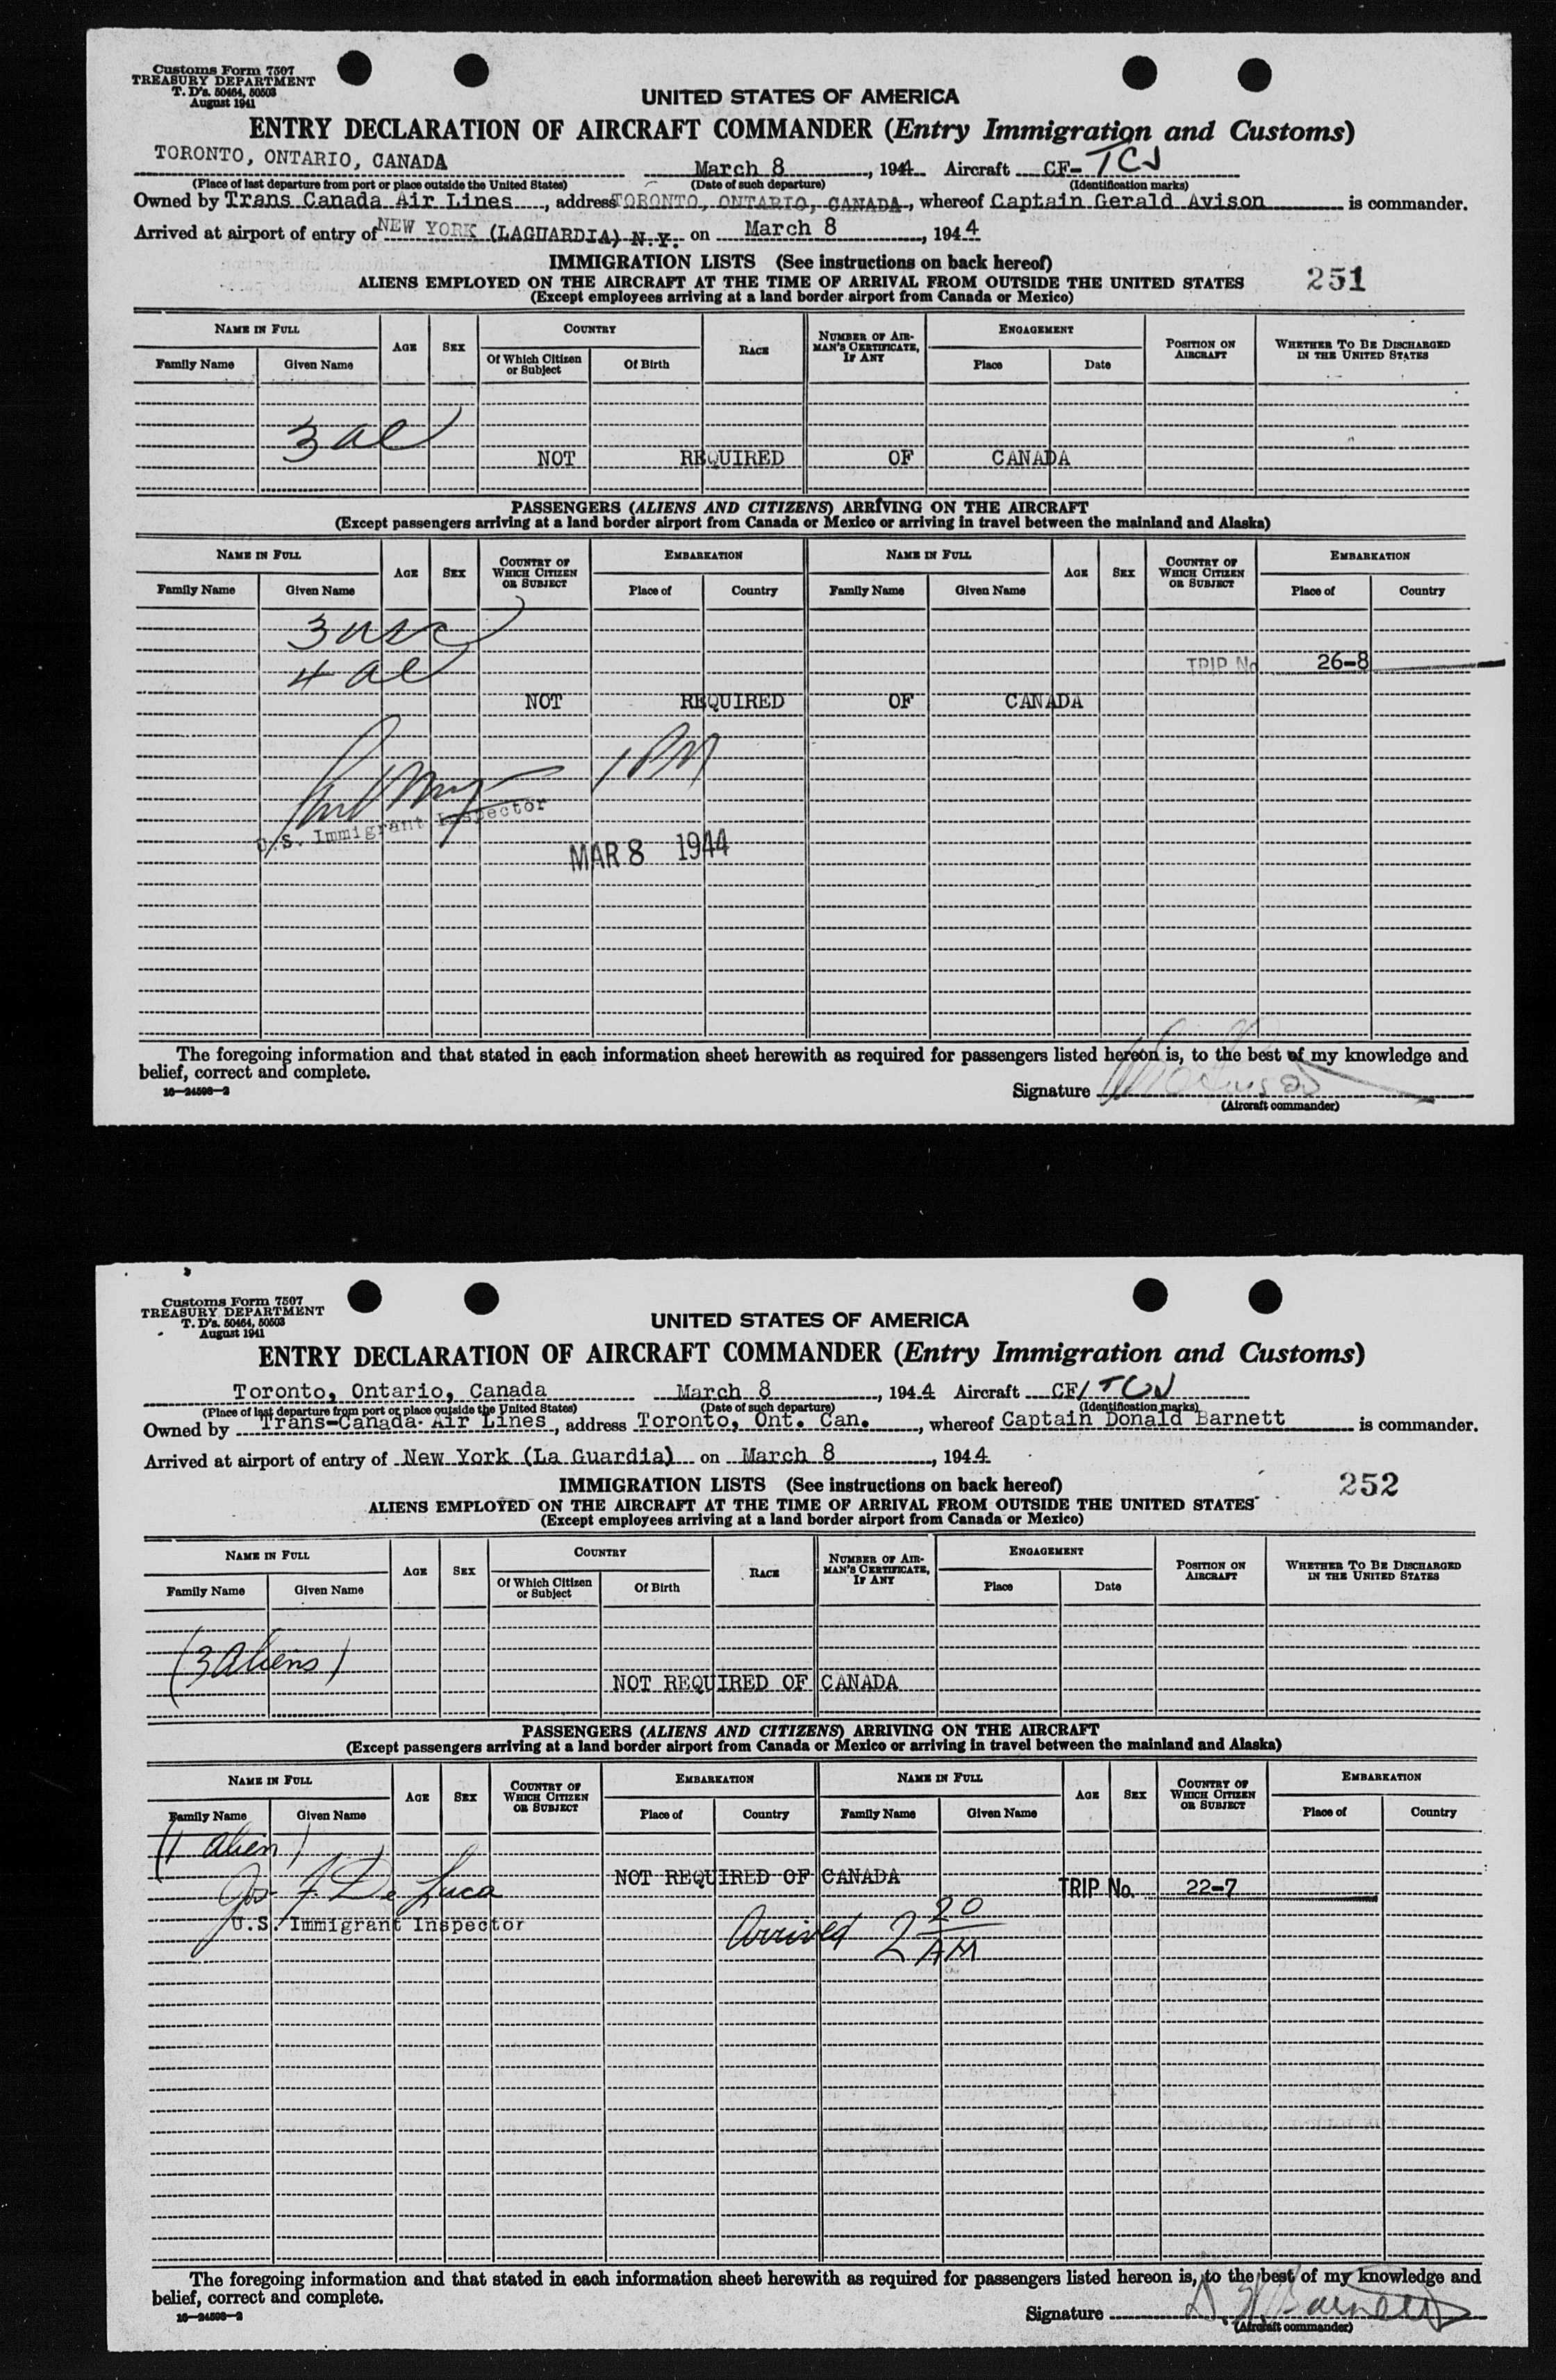 Customs Form 7507
TREASURY DEPARTMENT
T. D's. 50464, 50503
August 1941
UNITED STATES OF AMERICA
ENTRY DECLARATION OF AIRCRAFT COMMANDER (Entry Immigration and Customs)
TORONTO, ONTARIO, CANADA March 8, 1944 Aircraft CF-TCJ
(Place of last departure from port or place outside the United States) (Date of such departure) (Identification marks)
Owned by Trans Canada Air Lines, address TORONTO, ONTARIO, CANADA, whereof Captain Gerald Avison is commander.
Arrived at airport of entry of NEW YORK (LAGUARDIA) N.Y. on March 8, 1944
IMMIGRATION LISTS (See instructions on back hereof)
251
ALIENS EMPLOYED ON THE AIRCRAFT AT THE TIME OF ARRIVAL FROM OUTSIDE THE UNITED STATES
(Except employees arriving at a land border airport from Canada or Mexico)
NAME IN FULL AGE SEX COUNTRY RACE NUMBER OF AIRMAN'S CERTIFICATE, IF ANY ENGAGEMENT POSITION ON AIRCRAFT WHETHER TO BE DISCHARGED IN THE UNITED STATES
Family Name Given Name Of Which Citizen or Subject Of Birth Place Date
3 al
NOT REQUIRED OF CANADA
PASSENGERS (ALIENS AND CITIZENS) ARRIVING ON THE AIRCRAFT
(Except passengers arriving at a land border airport from Canada or Mexico or arriving in travel between the mainland and Alaska)
NAME IN FULL AGE SEX COUNTRY OF WHICH CITIZEN OR SUBJECT EMBARKATION NAME IN FULL AGE SEX COUNTRY OF WHICH CITIZEN OR SUBJECT EMBARKATION
Family Name Given Name Place of Country Family Name Given Name Place of Country
3 usc
4 al
TRIP No 26-8
NOT REQUIRED OF CANADA
1 PM
U.S. Immigrant Inspector
MAR 8 1944
The foregoing information and that stated in each information sheet herewith as required for passengers listed hereon is, to the best of my knowledge and
belief, correct and complete.
16-24598-2
Signature
(Aircraft commander)
Customs Form 7507
TREASURY DEPARTMENT
T. D's. 50464, 50503
August 1941
UNITED STATES OF AMERICA
ENTRY DECLARATION OF AIRCRAFT COMMANDER (Entry Immigration and Customs)
Toronto, Ontario, Canada March 8, 1944 Aircraft CF/TCN
(Place of last departure from port or place outside the United States) (Date of such departure) (Identification marks)
Owned by Trans-Canada Air Lines, address Toronto, Ont. Can., whereof Captain Donald Barnett is commander.
Arrived at airport of entry of New York (La Guardia) on March 8, 1944
IMMIGRATION LISTS (See instructions on back hereof)
252
ALIENS EMPLOYED ON THE AIRCRAFT AT THE TIME OF ARRIVAL FROM OUTSIDE THE UNITED STATES
(Except employees arriving at a land border airport from Canada or Mexico)
NAME IN FULL AGE SEX COUNTRY RACE NUMBER OF AIRMAN'S CERTIFICATE, IF ANY ENGAGEMENT POSITION ON AIRCRAFT WHETHER TO BE DISCHARGED IN THE UNITED STATES
Family Name Given Name Of Which Citizen or Subject Of Birth Place Date
(3 Aliens)
NOT REQUIRED OF CANADA
PASSENGERS (ALIENS AND CITIZENS) ARRIVING ON THE AIRCRAFT
(Except passengers arriving at a land border airport from Canada or Mexico or arriving in travel between the mainland and Alaska)
NAME IN FULL AGE SEX COUNTRY OF WHICH CITIZEN OR SUBJECT EMBARKATION NAME IN FULL AGE SEX COUNTRY OF WHICH CITIZEN OR SUBJECT EMBARKATION
Family Name Given Name Place of Country Family Name Given Name Place of Country
(1 alien)
NOT REQUIRED OF CANADA
Jos. F. De Luca
TRIP No. 22-7
U.S. Immigrant Inspector
Arrived 2 20 AM
The foregoing information and that stated in each information sheet herewith as required for passengers listed hereon is, to the best of my knowledge and
belief, correct and complete.
16-24598-2
Signature D. W. Barnett
(Aircraft commander)